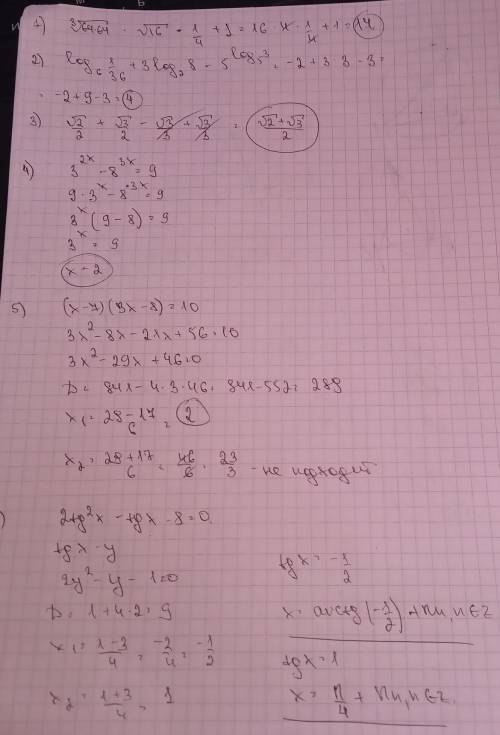 1) ∛64·64 · √16 · 1/4 + 1 = 16 · 4 · 1/4 + 1 = 17
2) log₆ 1/36 + 3log₂8 - 5^log₅3 = -2 + 3·3 - 3 =
= -2+9-3 = 4
3) √2/2 + √3/2 - √3/3 + √3/3 = √2+√3/2
4) 3^2x - 8^3x = 9
9·3^x - 8·3^x = 9
3^x (9-8) = 9
3^x = 9
x = 2
5) (x-7)(3x-8) = 10
3x² - 8x - 21x + 56 = 10
3x² - 29x + 46 = 0
D = 841 - 4·3·46 = 841 - 552 = 289
x₁ = 29-17/6 = 2
x₂ = 29+17/6 = 46/6 = 23/3 - не подходит
) 2tg²x - tgx - 8 = 0
tgx = y
2y² - y - 1 = 0
D = 1+4·2 = 9
x₁ = 1-3/4 = -2/4 = -1/2
x₂ = 1+3/4 = 1
tgx = -1/2
x = arctg(-1/2) + πn, n∈Z
tgx = 1
x = π/4 + πn, n∈Z.